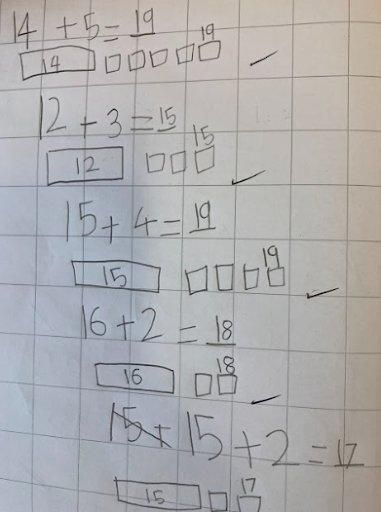 14 + 5 = 19
19
14
12 + 3 = 15
15
12
15 + 4 = 19
19
15
16 + 2 = 18
18
16
15 + 15 + 2 = 17
17
15